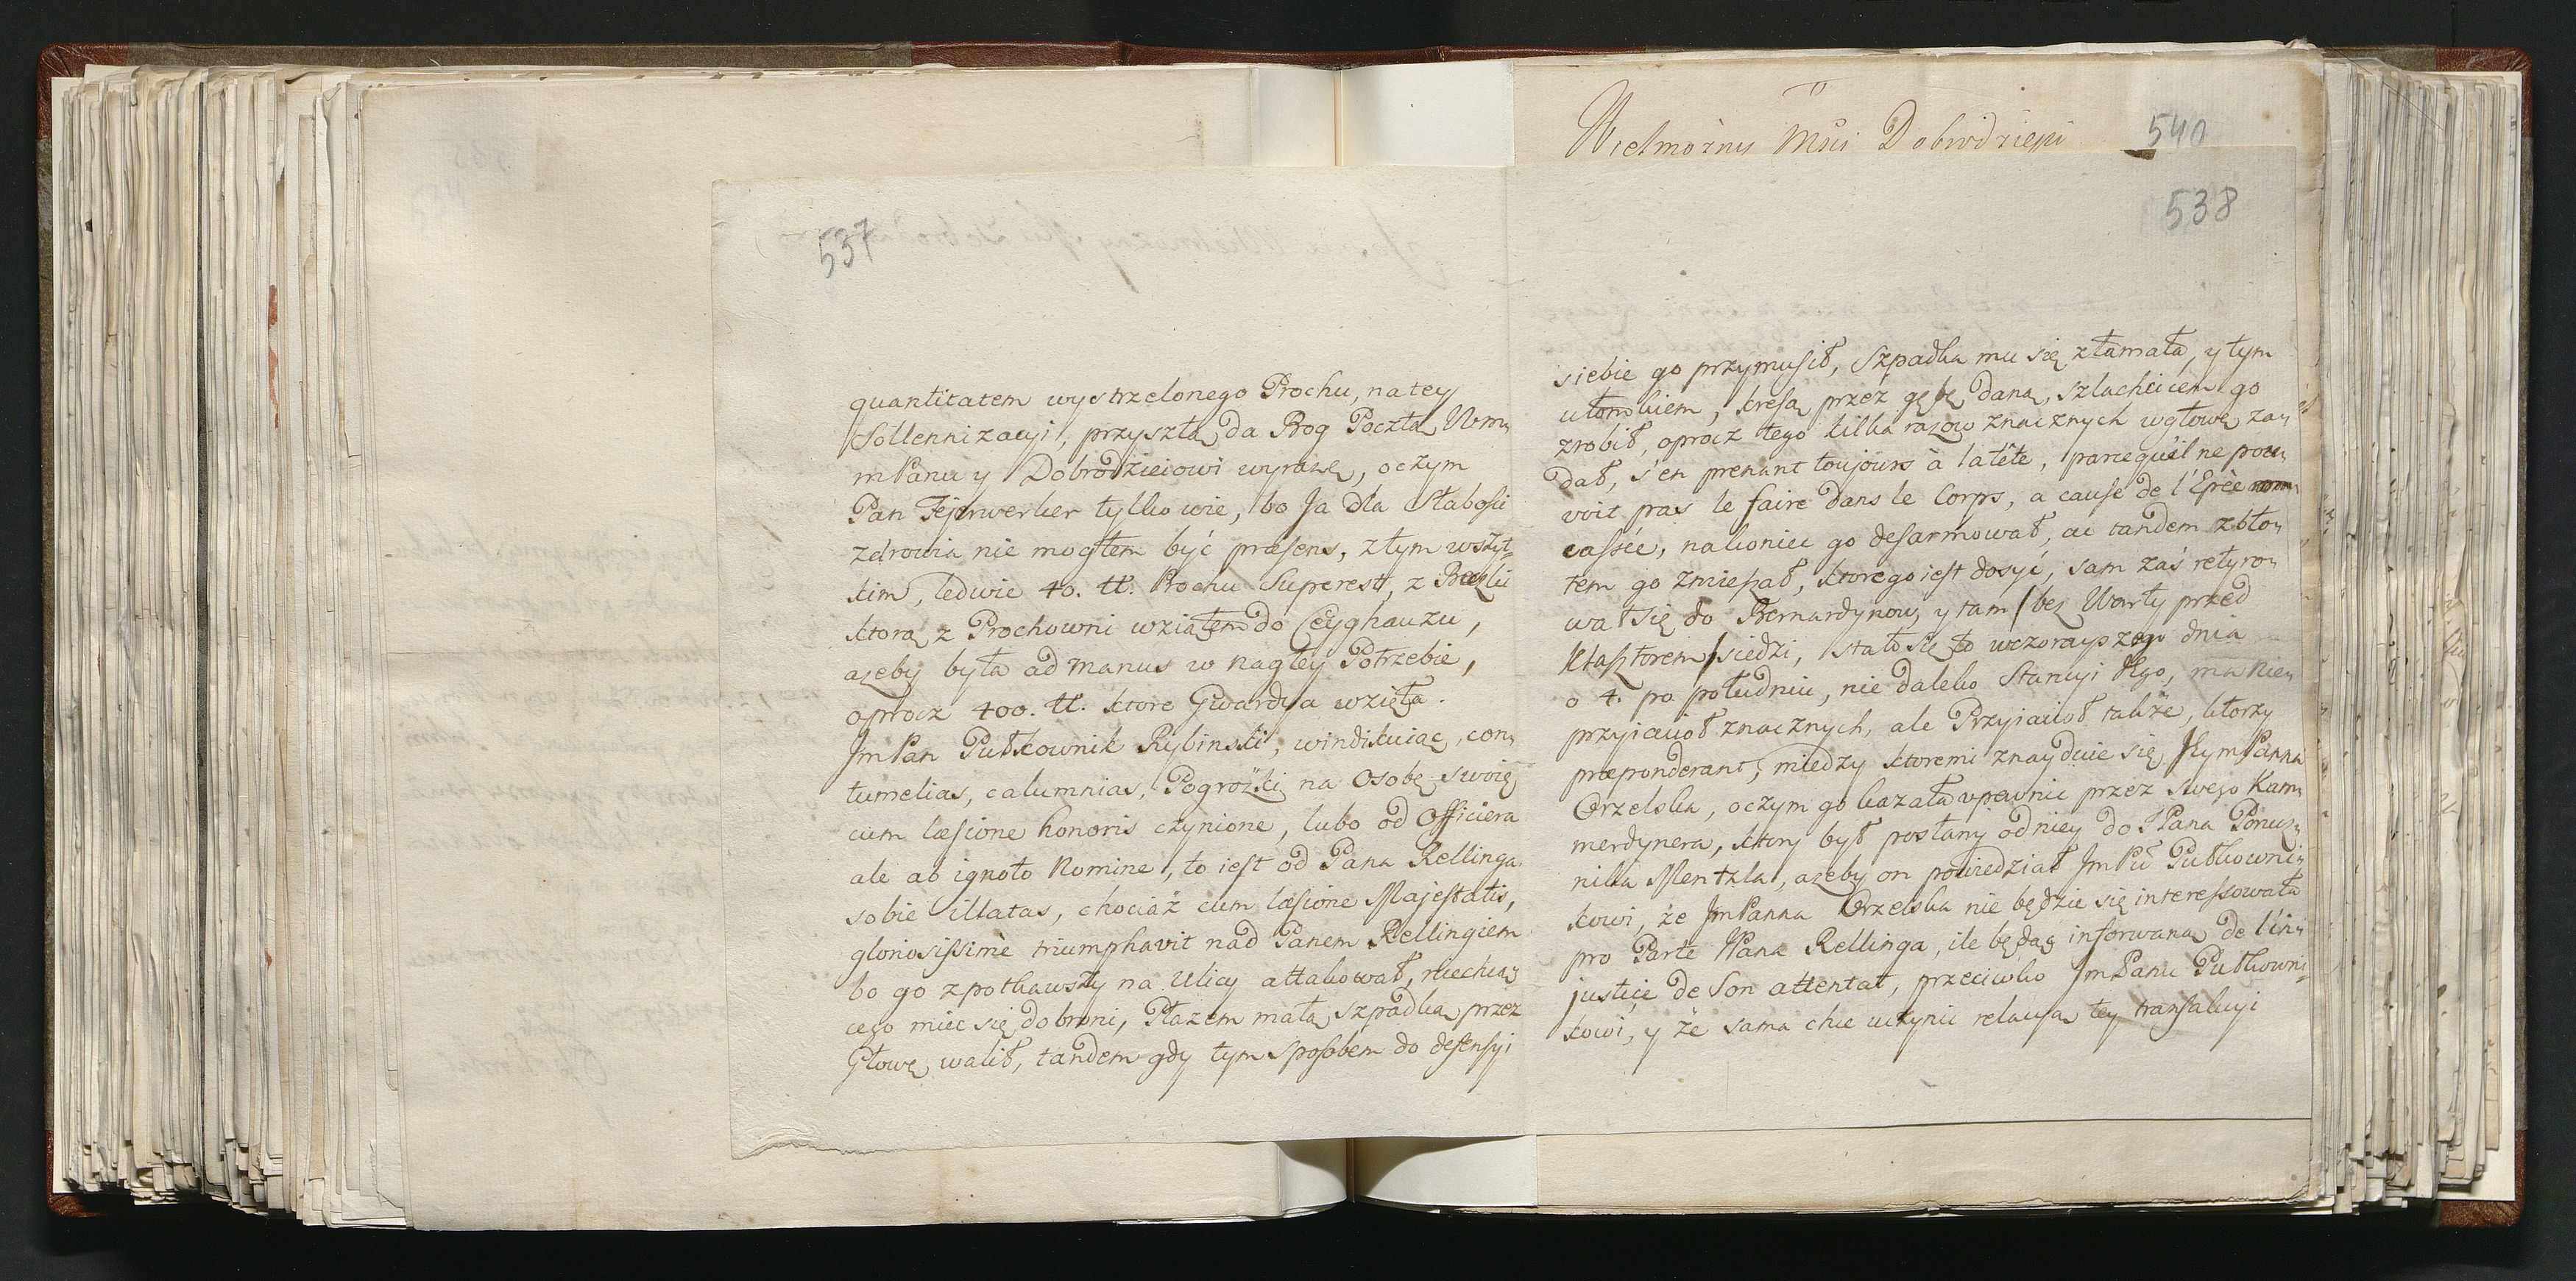 537
quantitatem wystrzelonego Prochu, na tey
Sollennizacyi, przyszłą da Bog Pocztą Wm
m Panu y Dobrodzieiowi wyrażę, o czym
Pan Fejerwerker tylko wie, bo Ja dla słabości
zdrowia nie mogłem być præsens, z tym wszyt=
kim, ledwie 40. tt. Prochu Superest, z Beczki
ktorą z Prochowni wziąłem do Ceyghauzu,
ażeby była ad manus w nagłey Potrzebie,
oprocz 400. tt. ktore Gwardya wzięła.
Jm Pan Pułkownik Rybinski, windikuiąc, con,
tumelias, calumnias, Pogrożki na Osobę swoię
cum læsione honoris czynione, lubo od Officiera
ale ab ignoto Nomine, to iest od Pana Rellinga
sobie illatas, chociaż cum læsione Majestatis,
gloriosissimè triumphavit nad Panem Rellingiem
bo go zpotkawszy na Ulicy attakował, niechcą,
cego miec się do broni, Płazem małą szpadką przez
Głowę walił, tandem gdy tym sposobem do defensyi
Wielmożny Mśći Dobrodzieju
540
538
siebie go przymusił, Szpadka mu się złamała, y tym
ułomkiem, kresą przez gębę daną, szlachcicem go
zrobił, oprocz tego kilka razow znacznych w głowę za,
dał, s'en prenant toujours à la tête, parcequ'il ne pou,
voit pas le faire dans le Corps, a cause de l'Epèe
cassée, nakoniec go desarmował, ac tandem z bło,
tem go zmieszał, ktorego iest dosyć, sam zaś retyro,
wał się do Bernardynow, y tam / bez Warty przed
Klasztorem / siedzi, stało się to wczorayszego dnia
o 4. po południu, nie daleko Stancyi Jego, ma Nie,
przyiacioł znacznych, ale Przyiacioł także, ktorzy
præponderant, miedzy ktoremi znayduie się Jeym Panna
Orzelska, o czym go kazała upewnic przez swego Kam,
merdynera, ktory był posłany od niey do Pana Porucz,
nika Mentzla, ażeby on powiedział Jm Pu Pułkowni,
kowi, że Jm Panna Orzelska nie będzie się interessowała
pro Parte Pana Rellinga, ile będąc informaną de l'in,
justice de Son attentat, przeciwko Jm Panu Pułkowni,
kowi, y że sama chce uczynic relacyą tey transakcyi